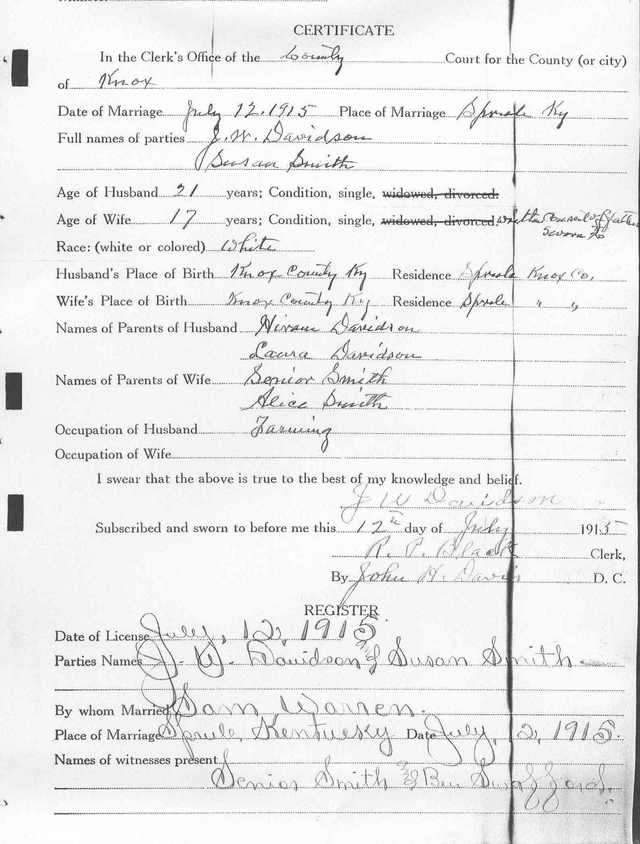 CERTIFICATE
In the Clerk's Office of the County Court for the County (or city)
of Knox
Date of Marriage July 12, 1915 Place of Marriage Sprule Ky
Full names of parties J. W. Davidson
Susan Smith
Age of Husband 21 years; Condition, single, widowed, divorced.
Age of Wife 17 years; Condition, single, widowed, divorced. of
Race: (white or colored) White
Husband's Place of Birth Knox County Ky Residence Sprule Knox Co.
Wife's Place of Birth Knox County Ky Residence Sprule " "
Names of Parents of Husband Hiram Davidson
Laura Davidson
Names of Parents of Wife Senior Smith
Alice Smith
Occupation of Husband Farming
Occupation of Wife
I swear that the above is true to the best of my knowledge and belief.
J W Davidson
Subscribed and sworn to before me this 12th day of July 1915
R. P. Black Clerk,
By John H. Davis D. C.
REGISTER
Date of License July, 12, 1915.
Parties Names J. W. Davidson and Susan Smith
By whom Married Sam Warren.
Place of Marriage Sprule, Kentucky Date July, 12, 1915.
Names of witnesses present
Senior Smith and Ben Swafford.